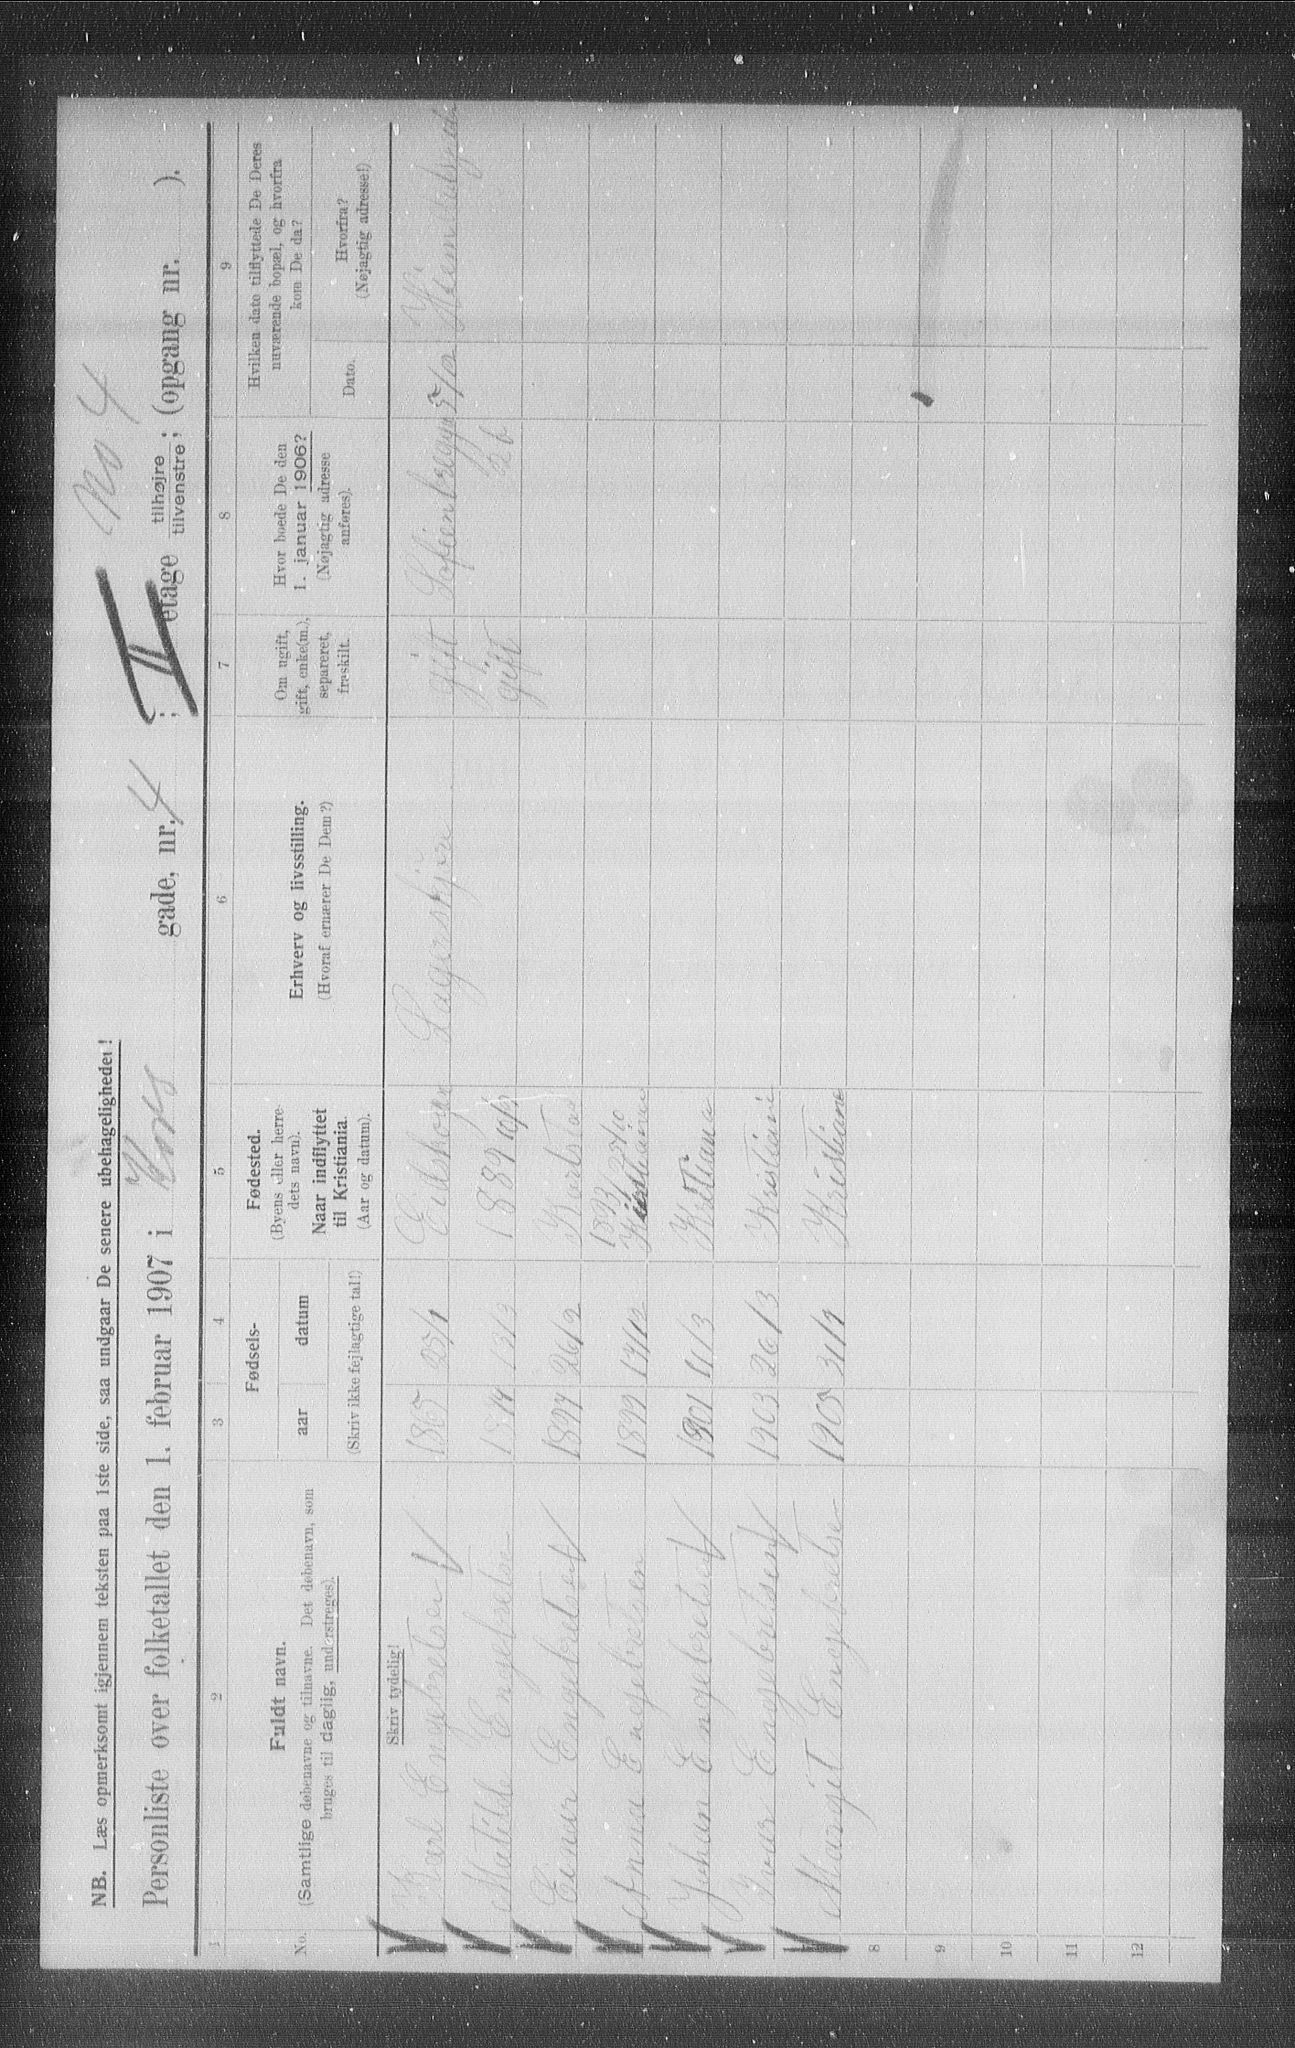 NB. Læs opmerksomt igjennem teksten paa 1ste side, saa undgaar De senere ubehageligheder!
No 4
Personliste over folketallet den 1. februar 1907 i Kors gade, nr. 4 ; II etage tilhøjre tilvenstre; (opgang nr. ).
1 2 3 4 5 6 7 8 9
No.
Fuldt navn.
(Samtlige døbenavne og tilnavne. Det døbenavn, som
bruges til daglig, understreges).
Fødsels-
aar datum
(Skriv ikke fejlagtige tal!)
Fødested.
(Byens eller herre-
dets navn).
Naar indflyttet
til Kristiania.
(Aar og datum).
Erhverv og livsstilling.
(Hvoraf ernærer De Dem?)
Om ugift,
gift, enke(m.),
separeret,
fraskilt.
Hvor boede De den
1. januar 1906?
(Nøjagtig adresse
anføres).
Hvilken dato tilflyttede De Deres
nuværende bopæl, og hvorfra
kom De da?
Dato.
Hvorfra?
(Nøjagtig adresse!)
Skriv tydelig!
Karl Engebretsen 1865 25/1 Eidskogen gift Sofienbreggn
Matilde Engebretsen 13/3 1889 gift 26
Einar Engebretsen 26/2 Karlstad
1893
Anna Engebretsen 1899 Kristiania
Johan Engebretsen 1901 11/3 Kristiania
Ivar Engebretsen 1903 26/3 Kristiani
Margit Engebretsen 1905 Kristiane
8
9
10
11
12